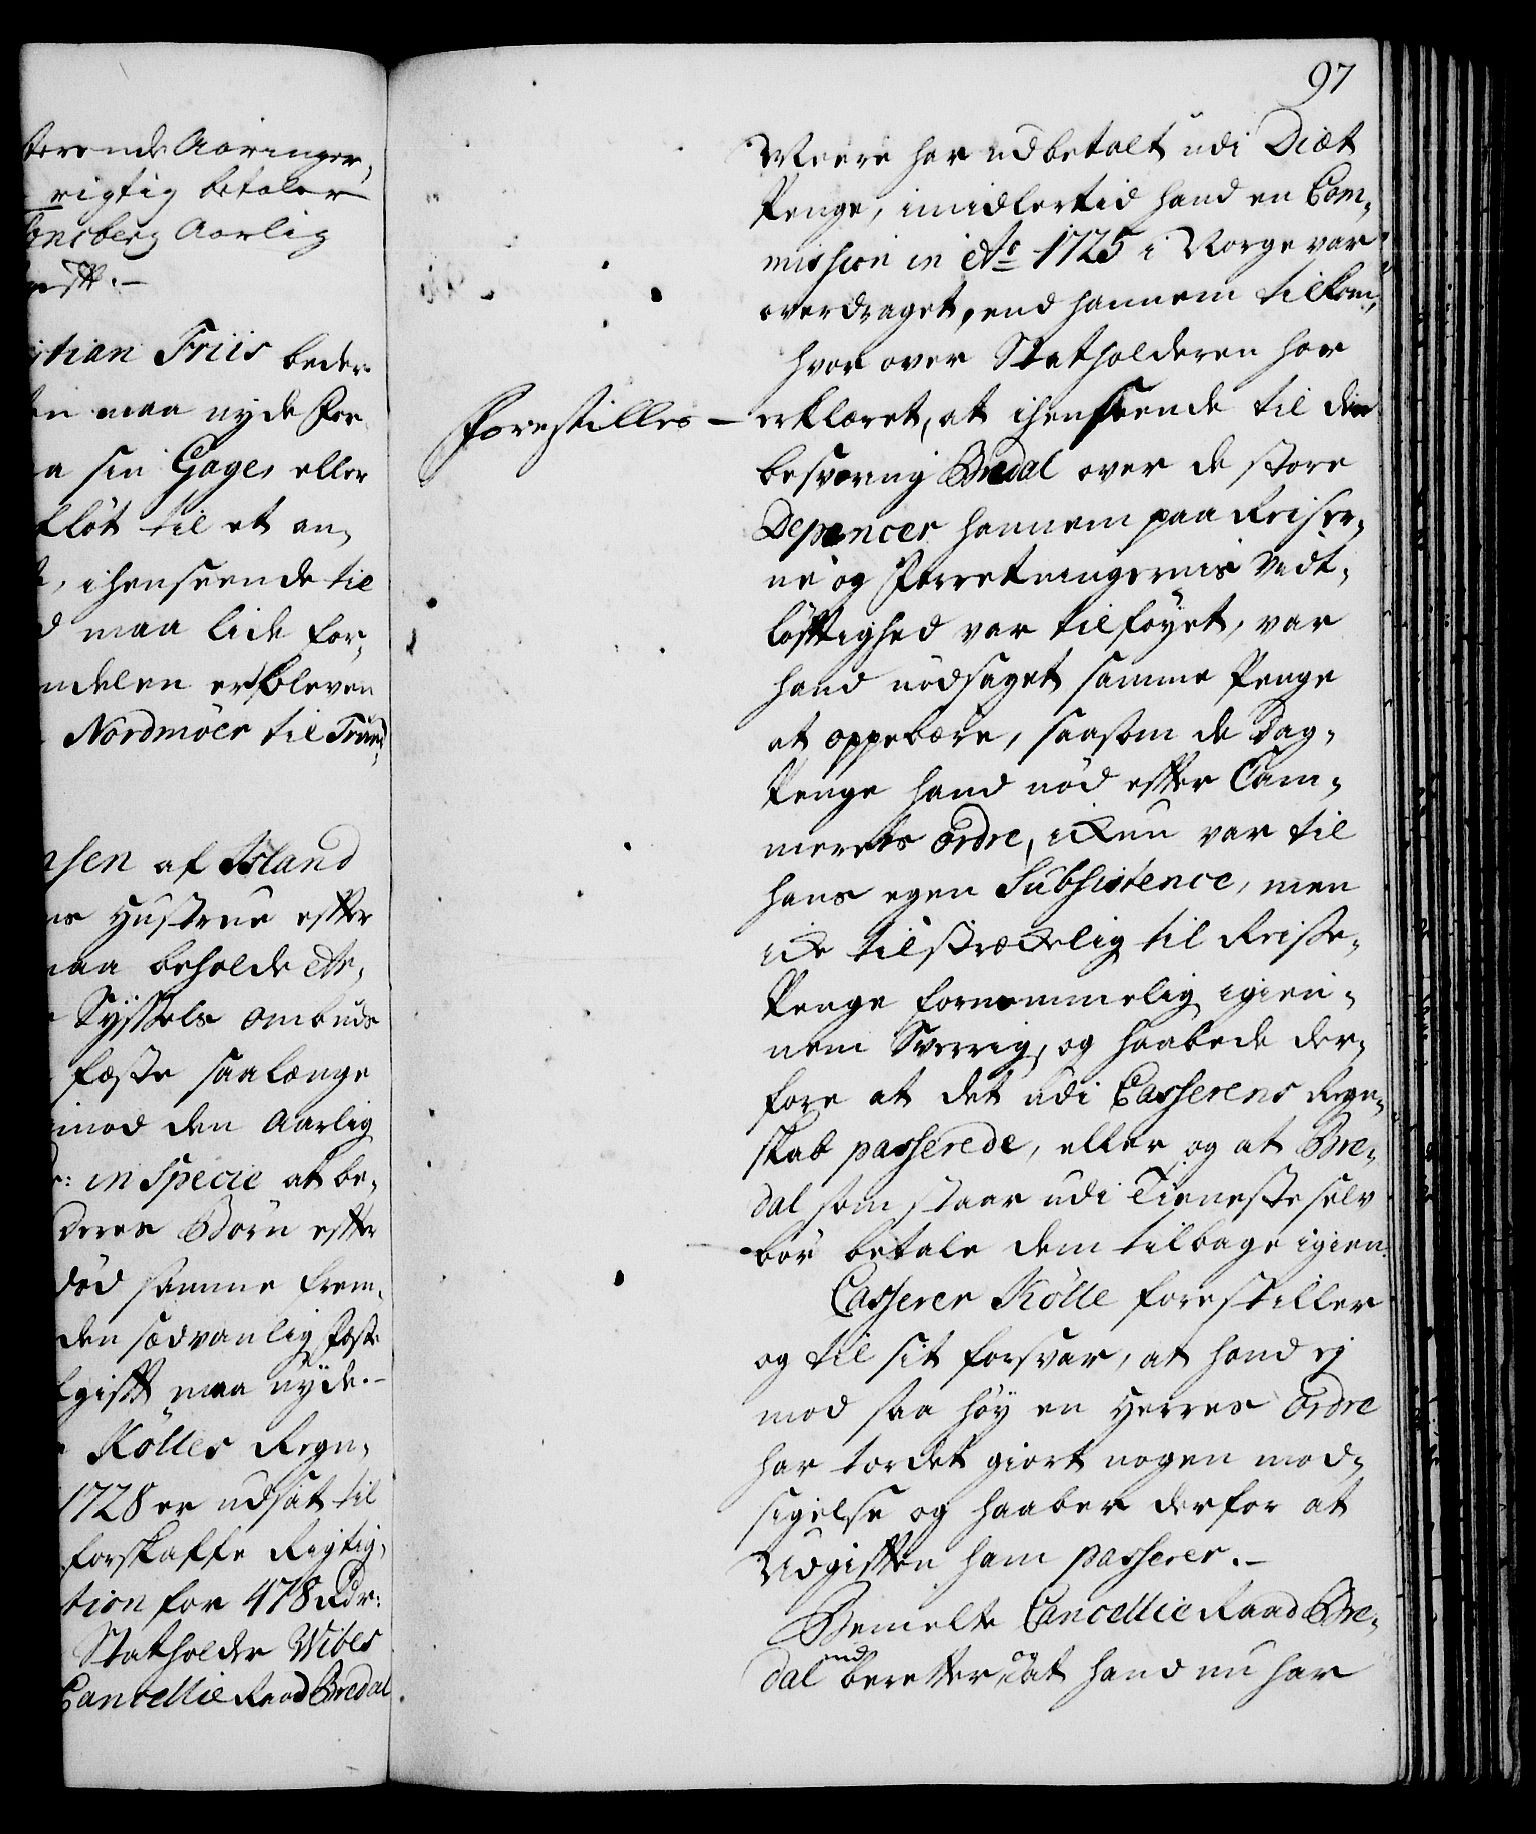 terende Aaringer,
rigtig betaler
Tonsberg Aarlig
stian Friis beder
en maa nyde for
a sin Gage, eller
fløt til et an,
, i henseende til
d maa lide for,
ndelen er bleven
Nordmöer til Trund,
nsen af Island
ns Hustrue efter
maa beholde
Syssels Ombuds
fæste saalænge
imod den Aarlig
r: in Specie at be,
deres Börn efter
död samme frem,
den sædvanlig Fæste
maa nyde.-
Kölles Regn,
1728 er udsat til
forskaffe Rigtig,
tion for 478 Rdr:
Statholder Wibes
Cancellie Raad Bredal
97
Meere har udbetalt udi Diæt
Penge, imidlertid hand en Com,
mission in Ao 1725 i Norge var
overdraget, end hannem tilkom,
hvor over Statholderen har
Forestilles - erklæret, at i henseende til den
besværing Bredal over de store
Depencer hannem paa Reiser,
ne og Forretningernis Vidt,
löftighed var tilföyet, var
hand nödsaget samme Penge
at oppebære, saasom de Dag,
Penge hand nöd efter Cam,
merets Ordre, ikkun var til
hans egen Subsistence, men
icke tilstræckelig til Reise,
Penge fornemmelig igien,
nem Sverrig, og haabede der,
fore at det udi Casserens Regn,
skab passerede, eller og at Bre,
dal som staar udi Tieneste selv
bör betale dem tilbage igien.
Casserer Kölle forestiller
og til sit forsvar, at hand ej
mod saa höy en Herres Ordre
har tordet giort nogen mod,
sigelse og haaber derfor at
Udgiften ham passerer.-
Bemelte Cancellie Raad Bre,
dal ind beretter og at hand nu har